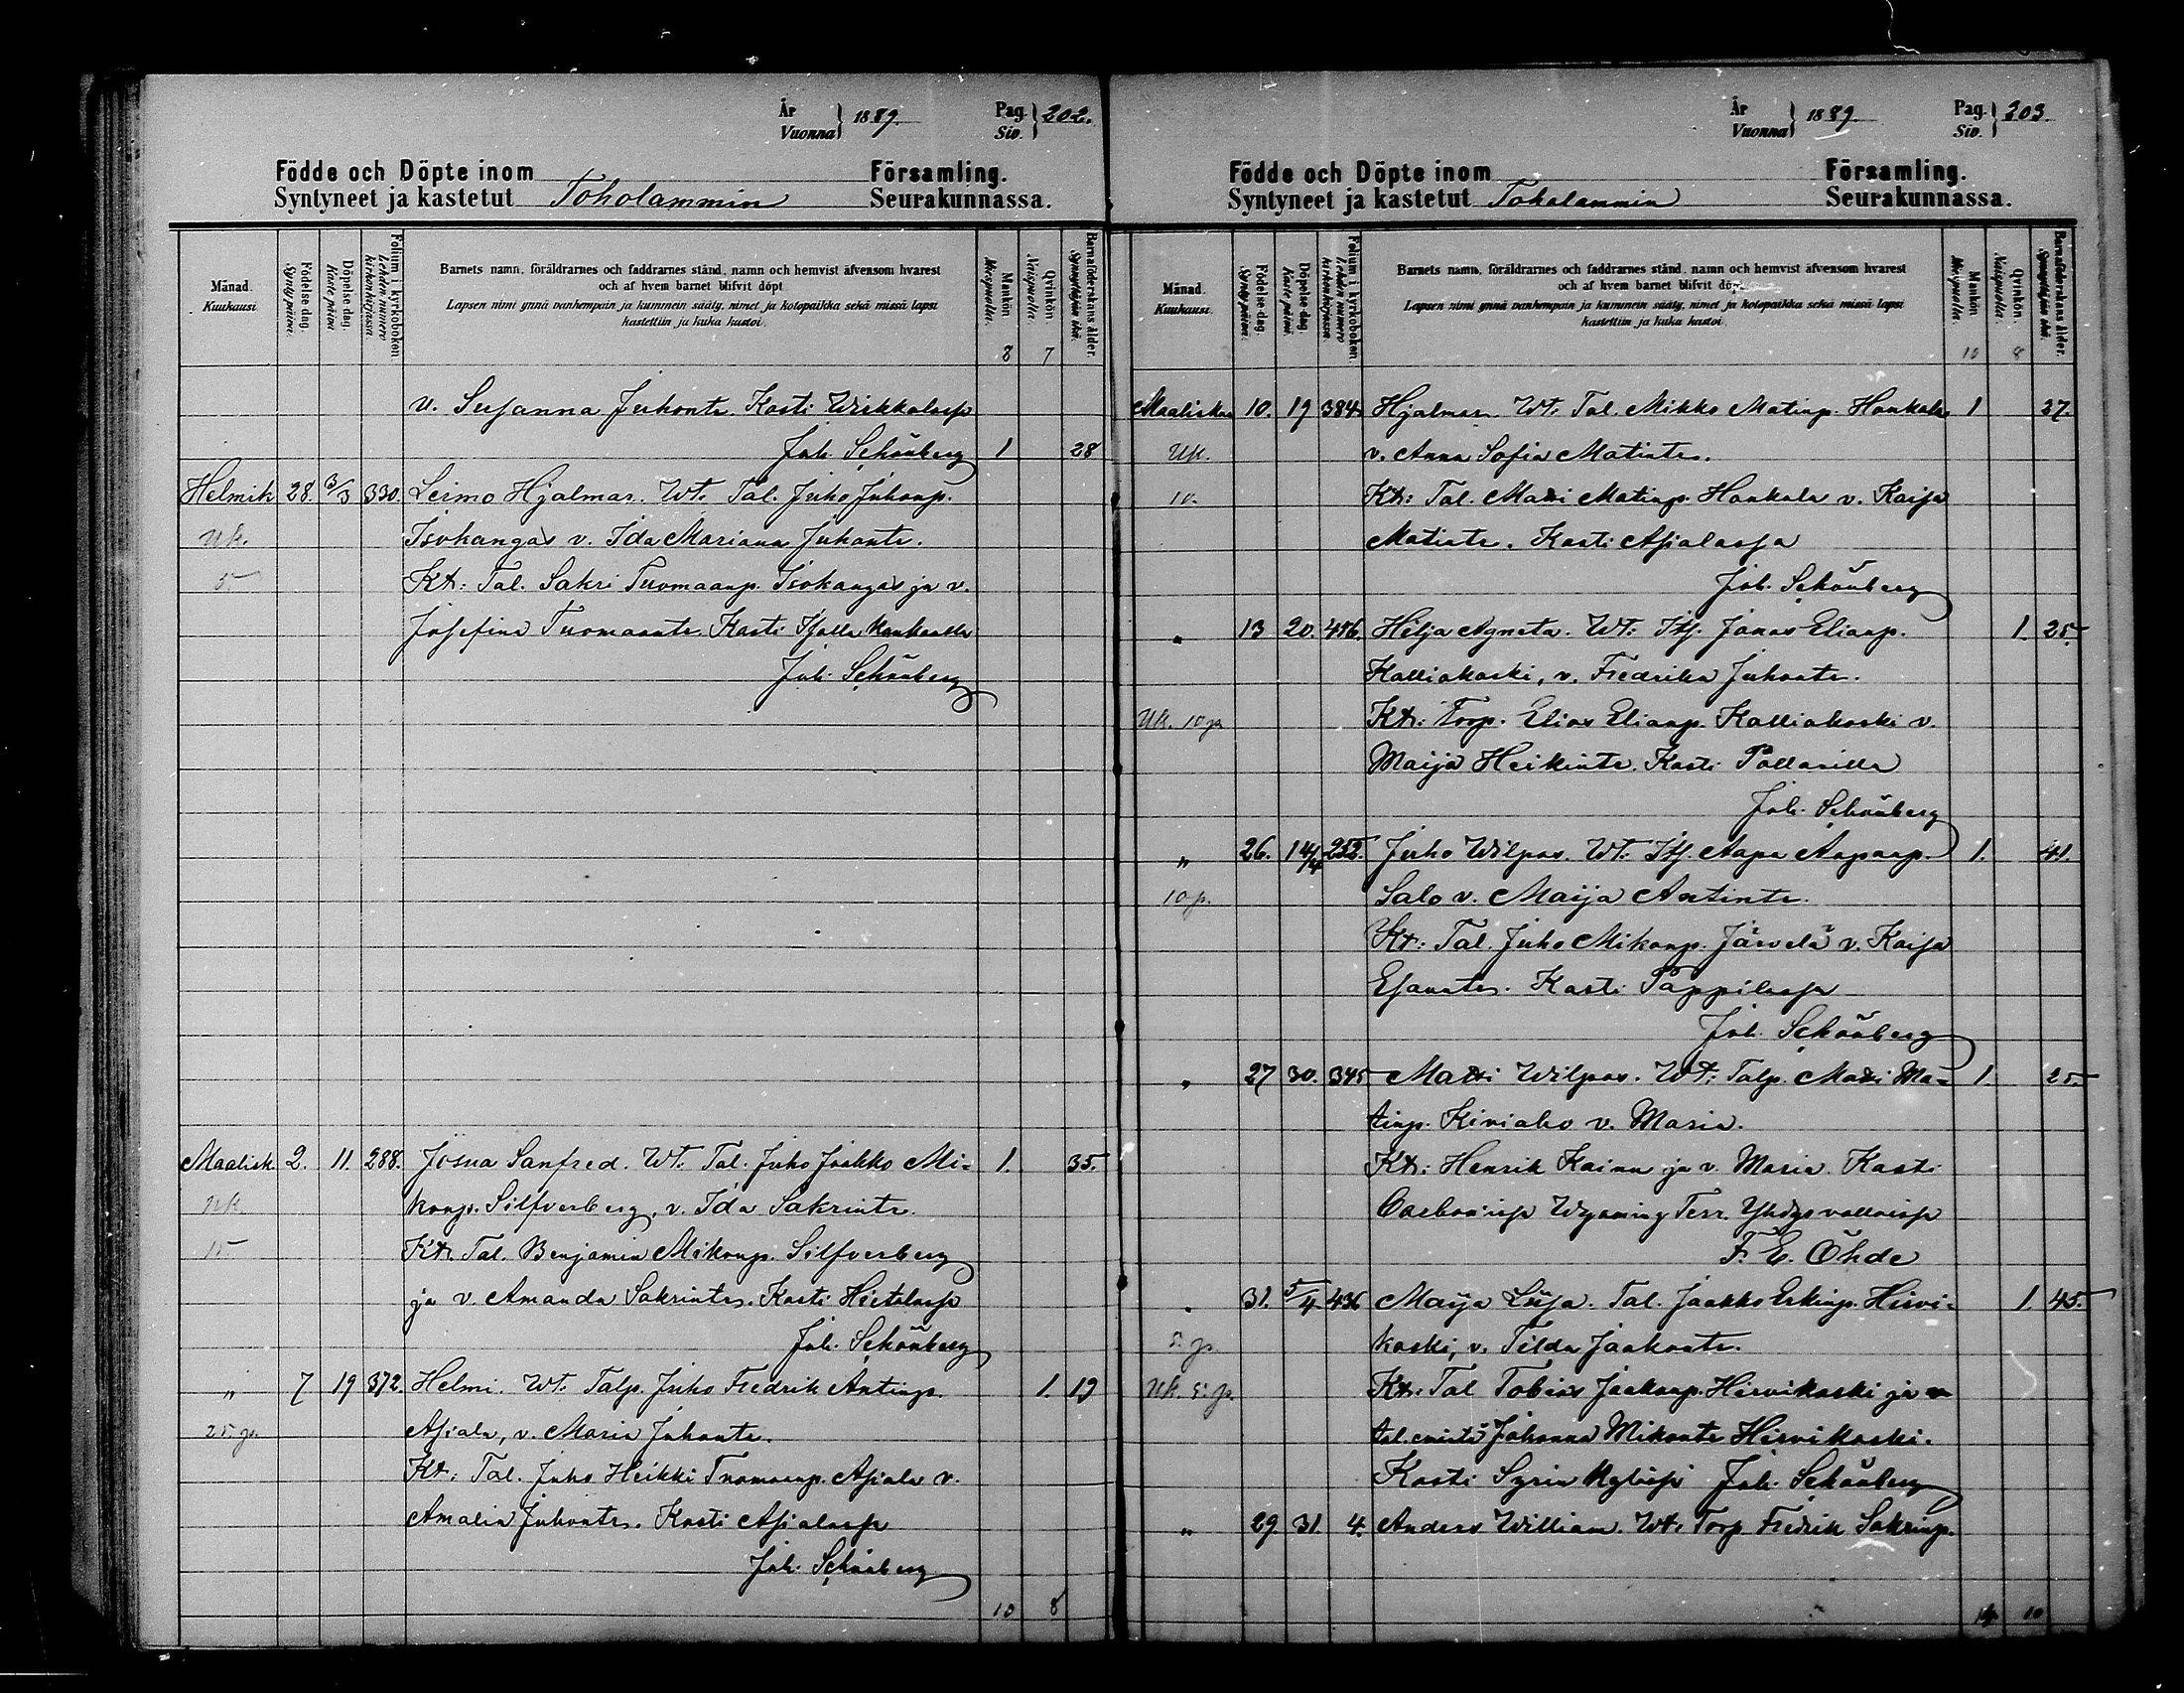 År
Vuonna } 1889.
Pag.
Siv. } 202.
Födde och Döpte inom Församling.
Syntyneet ja kastetut Toholammin Seurakunnassa.
Månad. Kuukausi
Födelse-dag. Synty päivä.
Döpelse-dag. Kaste päivä
Folium i kyrkoboken Lehden numero kirkonkirjassa.
Barnets namn, föräldrarnes och faddrarnes stånd, namn och hemvist äfvensom hvarest
och af hvem barnet blifvit döpt
Lapsen nimi ynnä vanhempain ja kummein sääty, nimet ja kotopaikka sekä missä lapsi
kastettiin ja kuka kastoi.
Mankön Miespuolia.
Qvinkön. Naispuolia.
Barnaföderskans ålder.
8 7
v. Susanna Juhontr. Kasti Wirkkalassa
Joh. Schönberg 1 28
Helmik 28. 3/3 330. Leimo Hjalmar. Wt. Tal. Juho Juhonp.
Uk. Isokangas v. Ida Mariana Juhontr.
5 Kt: Tal. Sakri Tuomaanp. Isokangas ja v.
Josefina Tuomaantr. Kasti
Joh. Schönberg
Maalisk 2. 11. 288. Josua Sanfred. Wt. Tal. Juho Jaakko Mi- 1. 35.
Uk konp. Silfverberg, v. Ida Sakrintr.
15 Kt. Tal. Benjamin Mikonp. Silfverberg
ja v. Amanda Sakrintr. Kasti Hietalassa
Joh. Schönberg
" 7 19 372. Helmi. Wt. Talp. Juho Fredrik Antinp. 1. 19
25 p. Asiala, v. Maria Juhontr.
Kt: Tal. Juho Heikki Tuomaanp. Asiala v.
Amalia Juhontr. Kasti Asialassa
Joh. Schönberg
10 8
År
Vuonna } 1889.
Pag.
Siv. } 203.
Födde och Döpte inom Församling.
Syntyneet ja kastetut Toholammin Seurakunnassa.
Månad. Kuukausi.
Födelse-dag. Synty päivä.
Döpelse-dag. Kaste päivä
Folium i kyrkoboken Lehden numero kirkonkirjassa.
Barnets namn, föräldrarnes och faddrarnes stånd, namn och hemvist äfvensom hvarest
och af hvem barnet blifvit döp
Lapsen nimi ynnä vanhempain ja kummein sääty, nimet ja kotopaikka sekä missä lapsi
kastettiin ja kuka kastoi.
Mankön Miespuolia.
Qvinkön. Naispuolia.
Barnaföderskans ålder.
10 8
Maalisk 10. 19 384 Hjalmar. Wt. Tal. Mikko Matinp. Hankala 1 37.
Uk. v. Anna Sofia Matintr.
10. Kt: Tal. Matti Matinp. Hankala v. Kaisa
Matintr. Kasti Asialassa
Joh. Schönberg
" 13 20. 456. Hilja Agneta. Wt: Itf. Jonas Elianp. 1. 25.
Kalliokoski, v. Fredrika Juhontr.
Uk. 10 p. Kt: Torp. Elias Elianp. Kalliokoski v.
Maija Heikintr. Kasti Pollarilla
Joh. Schönberg
" 26. 14/4 252. Juho Wilpas. Wt: Itf. Aapa Aapanp. 1. 41.
10 p. Salo v. Maija Antintr.
Kt: Tal. Juho Mikonp. Järvelä v. Kaisa
Esantr. Kasti Pappilassa
Joh. Schönberg
" 27 30. 345 Matti Wilpas. Wt: Talp. Matti Ma- 1. 25.
tinp. Kiviaho v. Maria.
Kt: Henrik Kainu ja v. Maria. Kasti
Carbonissa Wyoming Terr. Yhdysvalloissa
F. E. Öhde
" 31. 5/4 436 Maija Liisa. Tal. Jaakko Erkinp. Hirvi- 1. 45.
5. p. koski, v. Tilda Jaakontr.
Uk. 5. p. Kt: Tal Tobias Jaakonp. Hirvikoski ja
tal. emäntä Johanna Mikontr Hirvikoski.
Kasti Joh. Schönberg
" 29 31. 4. Anders William. Wt. Torp Fredrik Sakrinp.
14 10